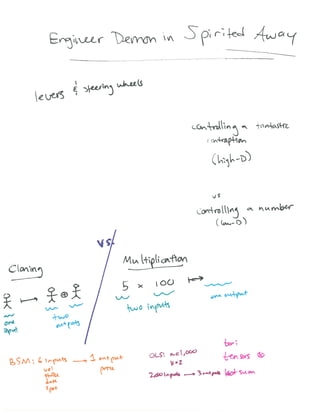 Engineer Demon in Spirited Away
levers & steering wheels
controlling a fantastic
contraption
(high-D)
vs
controlling a number
(low-D)
vs.
Cloning
one
input
two
outputs
Multiplication
5 × 100
two inputs
one output
BSM: 6 inputs → 1 output
vol
strike
date
spot
price
OLS: n=1,000
k=2
2,000 inputs → 3 outputs
tensors
last sum